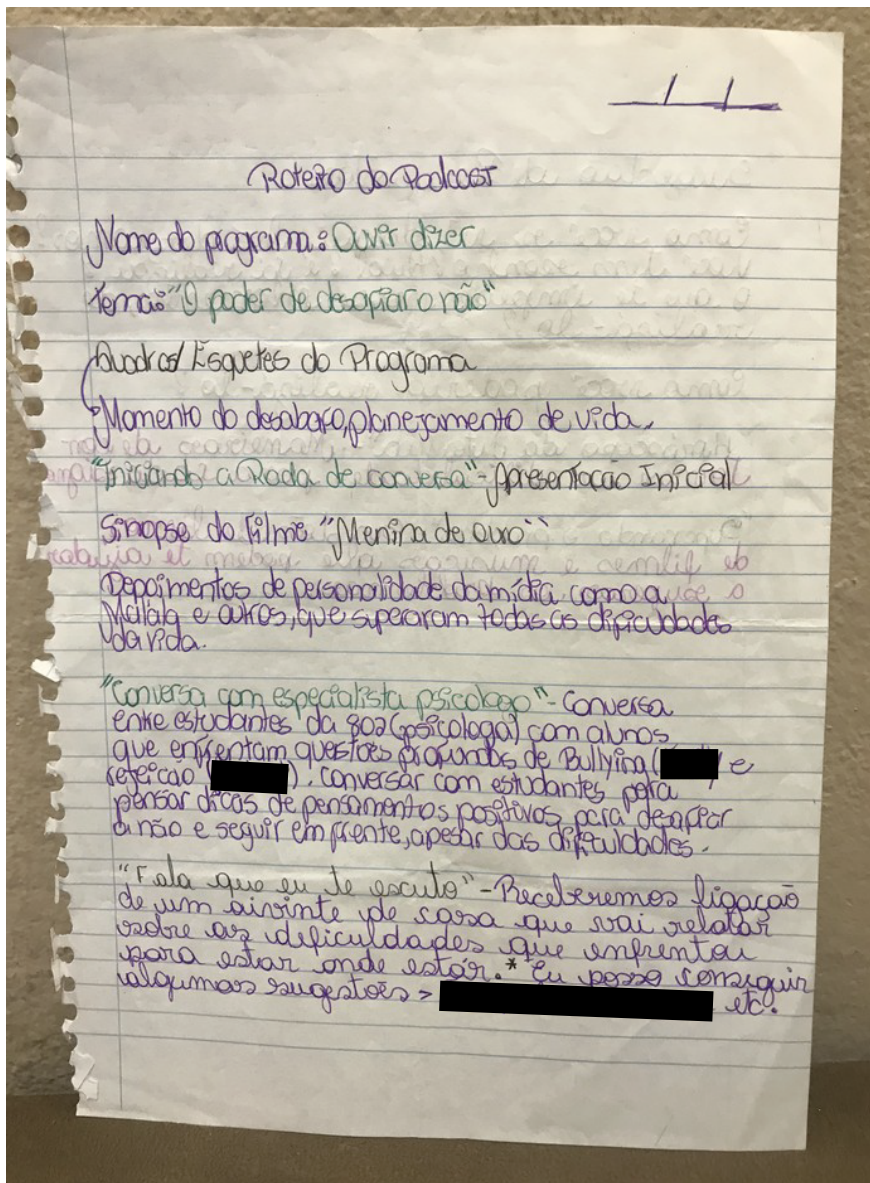 Roteiro do Podcast
Nome do programa: Ouvir dizer
Tema: "O poder de desafiar o não"
Quadros/ Esquetes do Programa
Momento do desabafo, planejamento de vida,
"Iniciando a Roda de conversa" - Apresentação Inicial
Sinopse do Filme "Menina de ouro"
Depoimentos de personalidade da mídia como a
Malala e outros, que superaram todas as dificuldades
da vida.
"Conversa com especialista psicologo" - Conversa
entre estudantes da 802 (psicologa) com alunos
que enfrentam questões profundas de Bullying ( ) e
rejeicao ( ). conversar com estudantes para
pensar dicas de pensamentos positivos para desafiar
o não e seguir em frente, apesar das dificuldades.
"Fala que eu te escuto" - Receberemos ligação
de um ouvinte de casa que vai relatar
sobre as dificuldades que enfrentou
para estar onde estár. * Eu posso conseguir
algumas sugestões > etc.